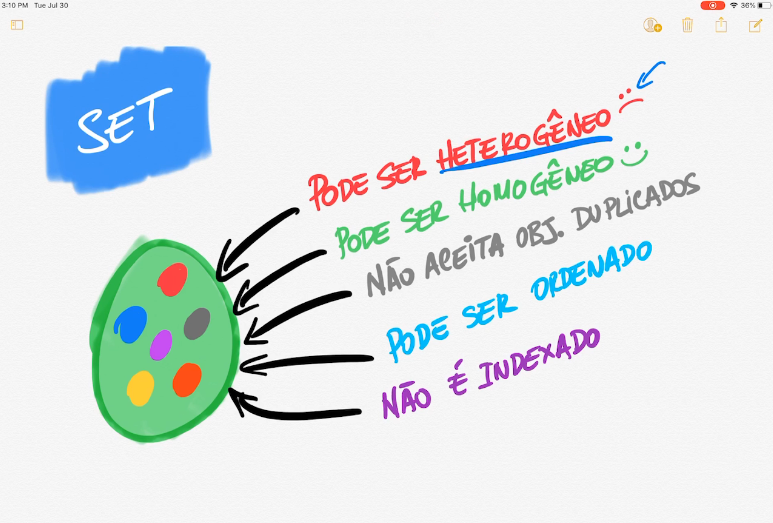 3:10 PM Tue Jul 30
36%
SET
PODE SER HETEROGÊNEO
PODE SER HOMOGÊNEO
NÃO ACEITA OBJ. DUPLICADOS
PODE SER ORDENADO
NÃO É INDEXADO